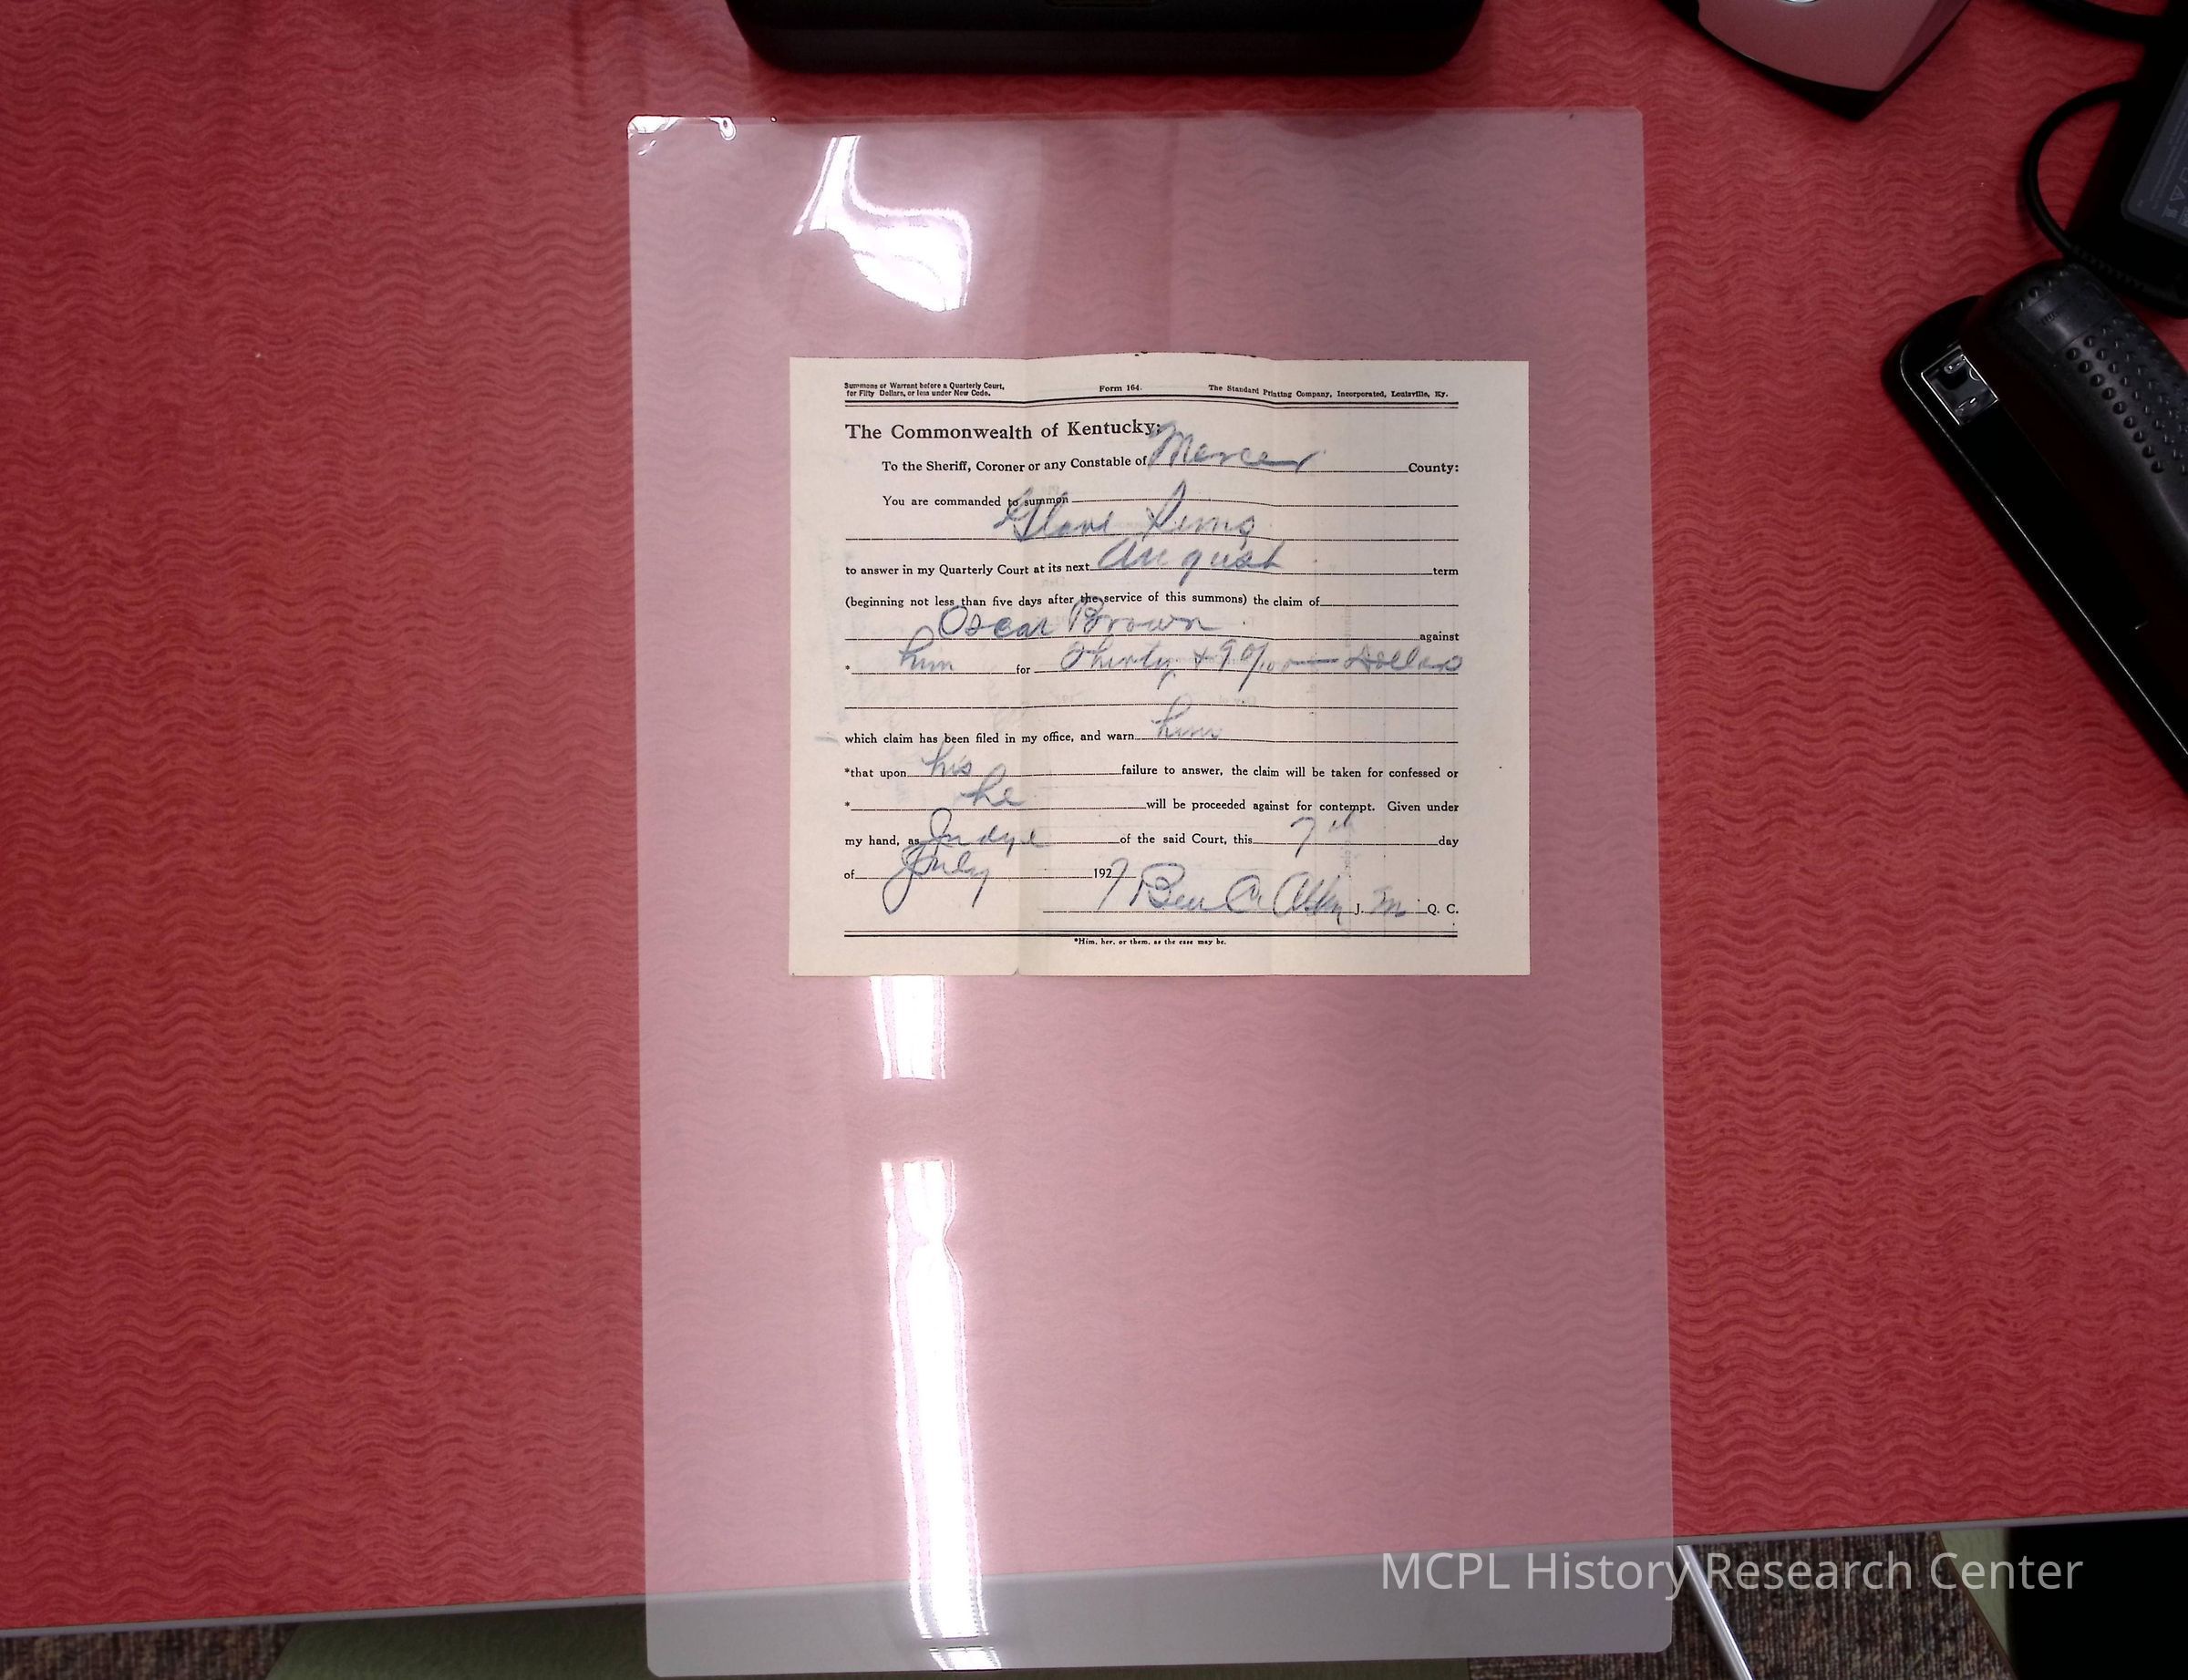 Summons or Warrant before a Quarterly Court, Form 164. The Standard Printing Company, Incorporated, Louisville, Ky.
for Fifty Dollars, or less under New Code.
The Commonwealth of Kentucky:
To the Sheriff, Coroner or any Constable of Mercer County:
You are commanded to summon
to answer in my Quarterly Court at its next August term
(beginning not less than five days after the service of this summons) the claim of
Oscar Brown against
* him for Thirty + 90/100 Dollars
which claim has been filed in my office, and warn him
*that upon his failure to answer, the claim will be taken for confessed or
* he will be proceeded against for contempt. Given under
my hand, as Judge of the said Court, this 7th day
of July 1927
Ben C. J. M Q. C.
*Him, her, or them, as the case may be.
MCPL History Research Center